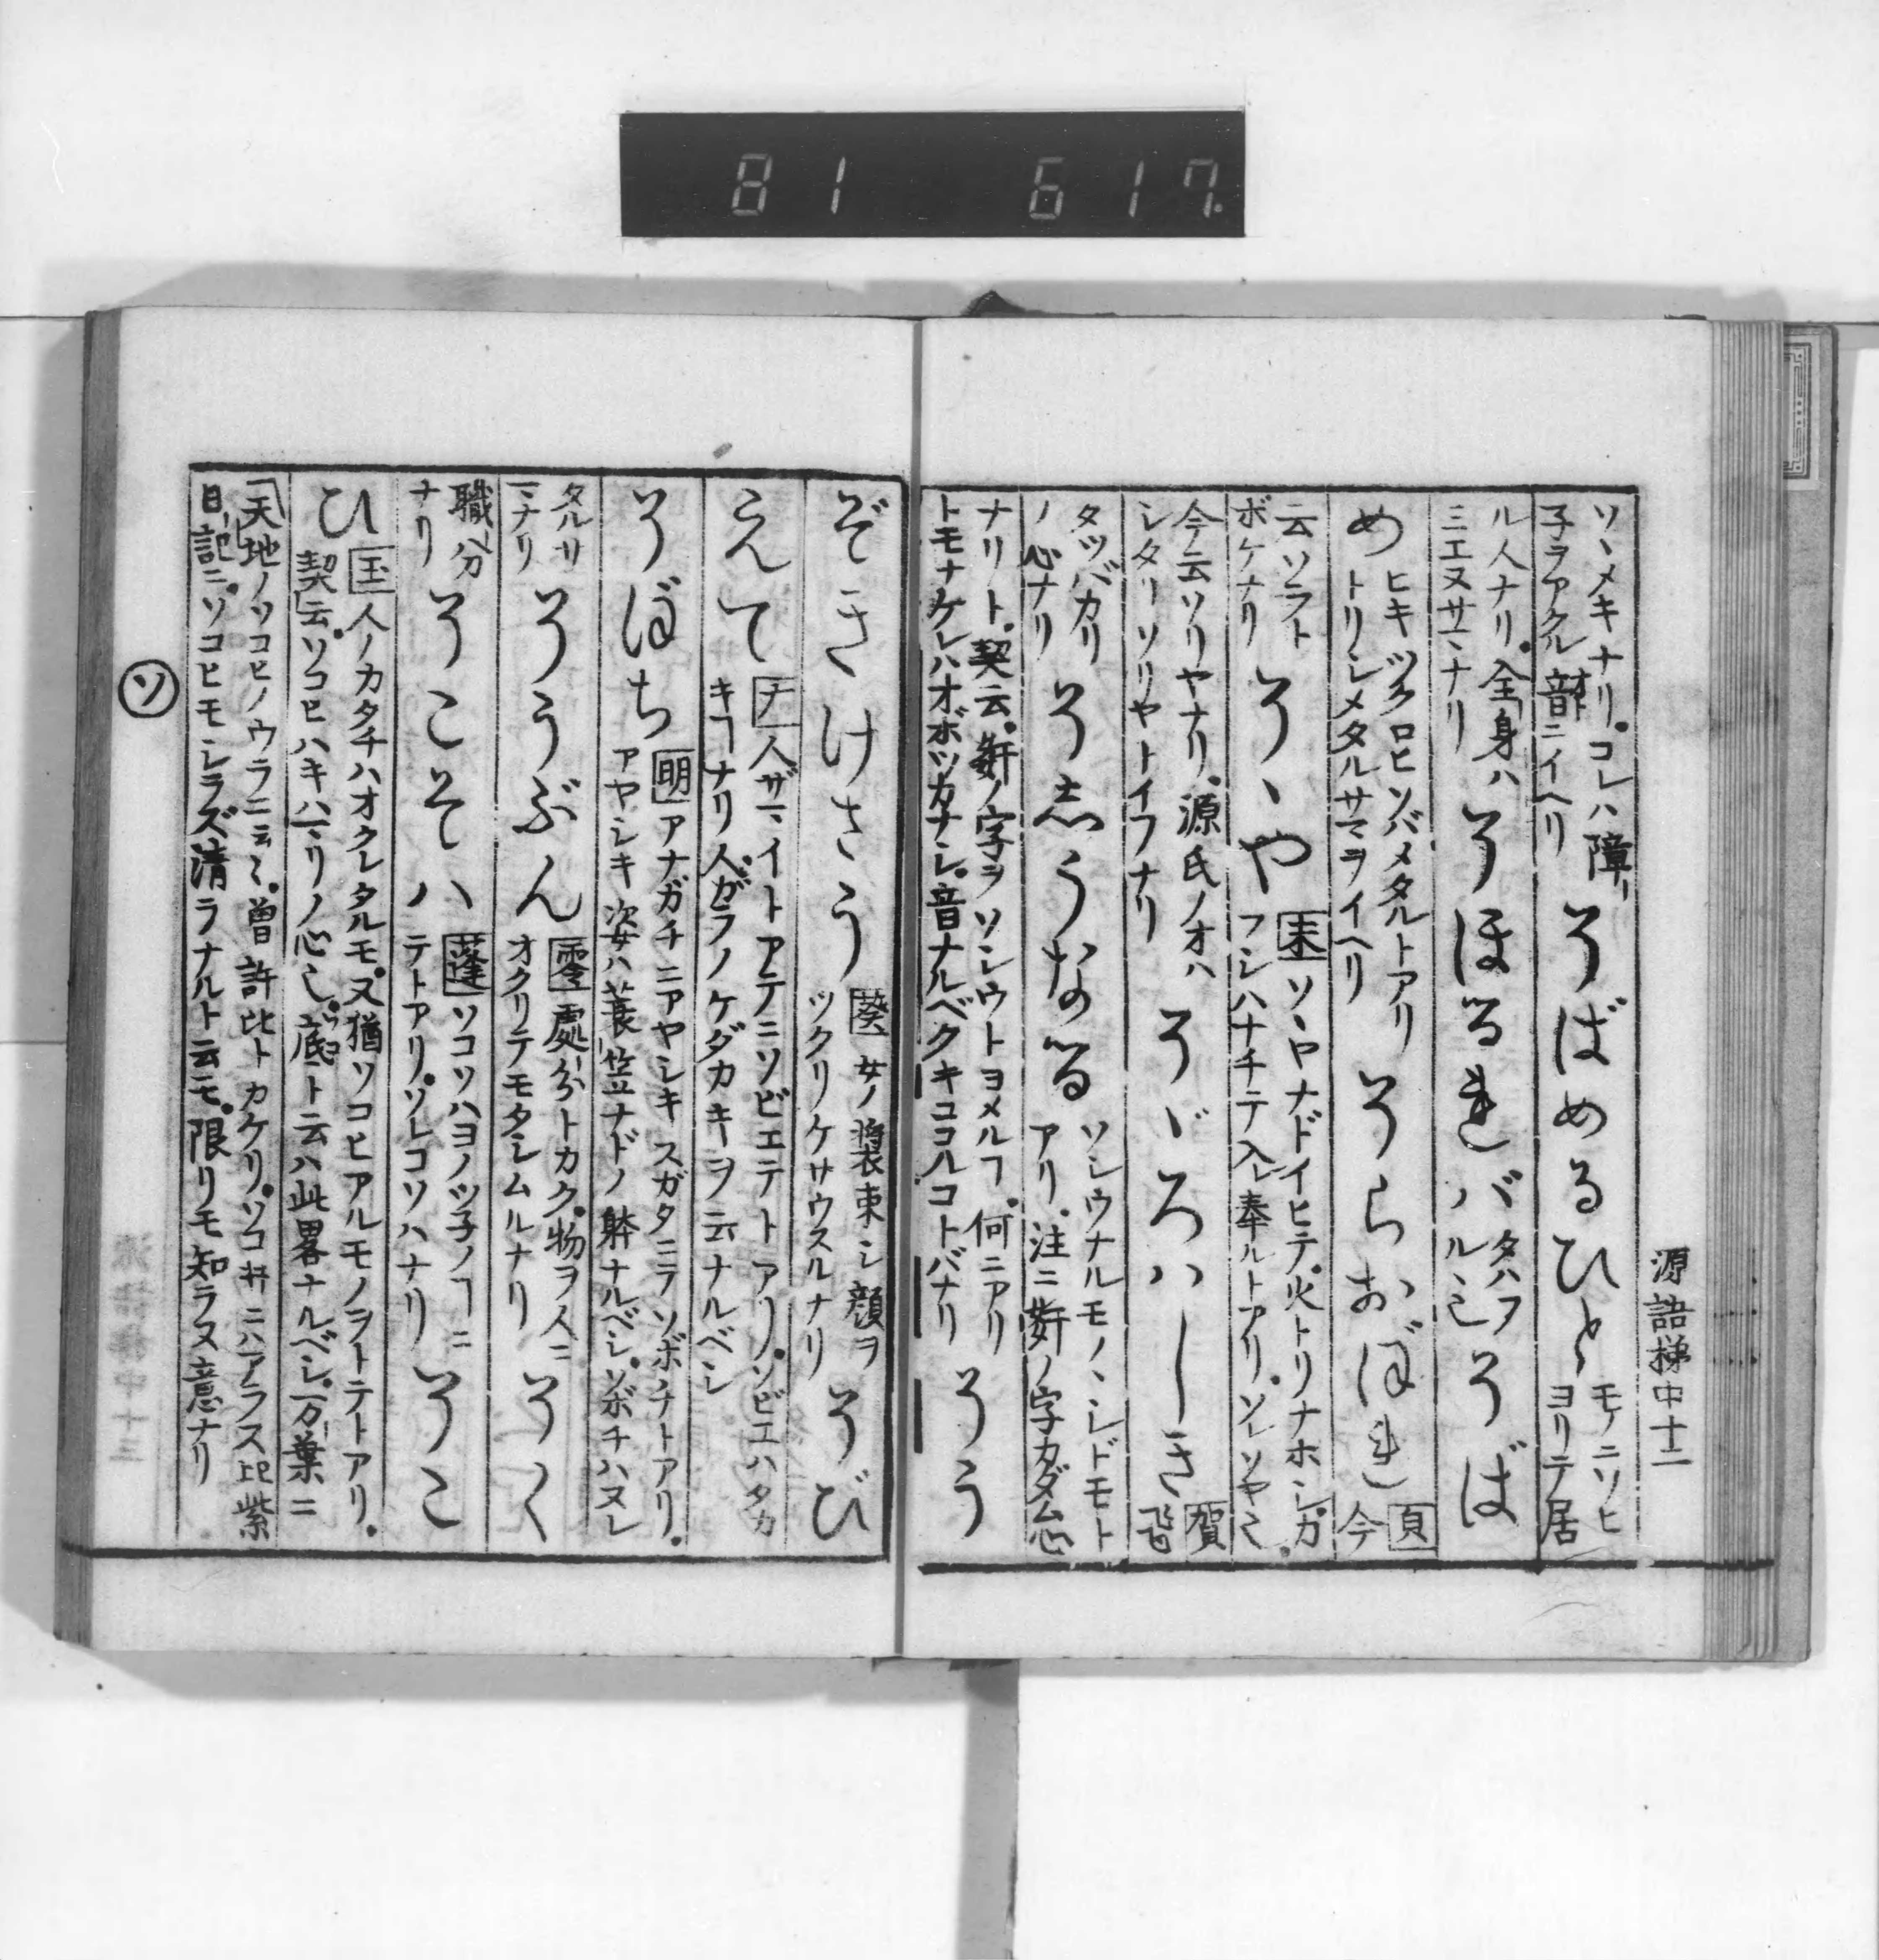 81 617
源語梯中十二
ソヽメキナリ。コレハ障
子ヲアクル音ニイヘリ
そばめるひと
モノニソヒ
ヨリテ居
ル人ナリ。全身ハ
ミエヌサマナリ
そほる
バタハフ
バルヒ
そば
め
ヒキツクロヒソバメタルトアリ
トリシメタルサマヲイヘリ
そらおぼれ
頁
今
云ソラト
ボケナリ
そゝや
末 ソヽヤナドイヒテ。火トリナホシ。カ
フシハナチテ入レ奉ルトアリ。ソレソヤ也
今云ソリヤナリ。源氏ノオハ
シターソリヤトイフナリ
そゞろハしき
賀
タツバカリ
ノ心ナリ
そしうなる
ソシウナルモノヽシドモト
アリ。注ニ姧ノ字カダム心
ナリト。契云。姧ノ字ヲソシウトヨメルヿ。何ニアリ
トモナケレハオボツカナシ。音ナルベクキココルコトバナリ
そう
ぞきけさう
葵 女ノ装束シ顔ヲ
ツクリケサウスルナリ
そび
えて
人ザマイトアテニソビエテトアリ。ソビエハタカ
キヿナリ人ガラノケダカキヲ云ナルベシ
そぼち
明 アナガチニアヤシキスガタニテソボチトアリ。
アヤシキ次女ハ蓑笠ナドノ躰ナルベシ。ソボチハヌレ
タルサ
マナリ
そうぶん
零 處分トカク。物ヲ人ニ
オクリテモタシムルナリ
そく
職分
ナリ
そこそハ
蓬 ソコソハヨノツ子ノヿニ
テトアリ。ソレコソハナリ
そこ
ひ
玉 人ノカタチハオクレタルモ。又猶ソコヒアルモノヲトテトアリ。
契云。ソコヒハキハマリノ心也。底ト云ハ此畧ナルベシ。万葉ニ
天地ノソコヒノウラニ云々。曽許比トカケリ。ソコ井ニハアラス紫
日記ニ。ソコヒモシラズ清ラナルト云モ。限リモ知ラヌ意ナリ
ソ